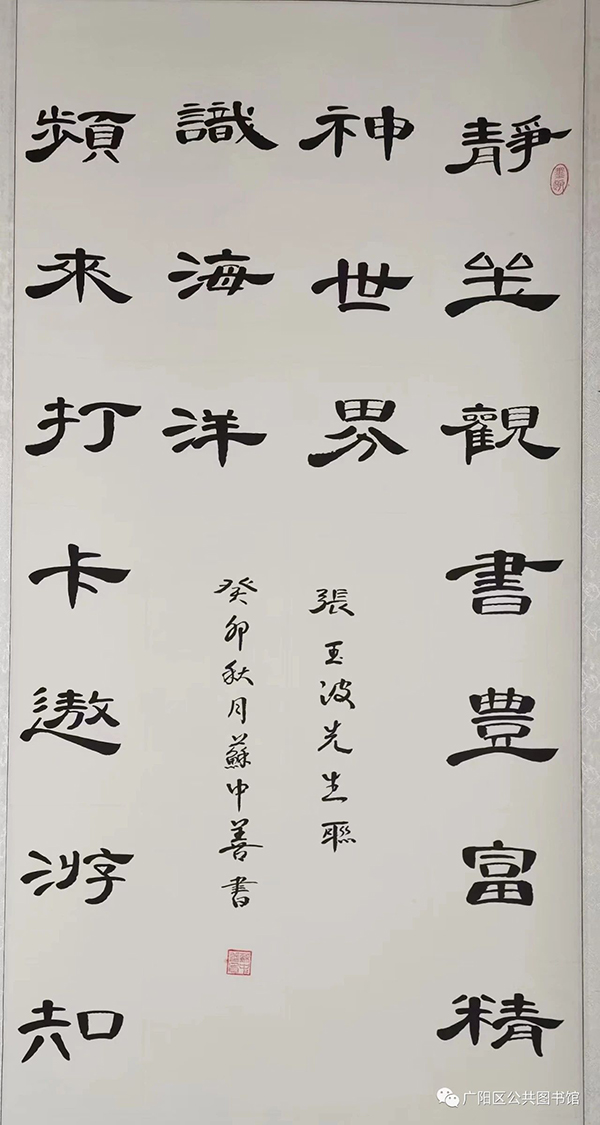 靜坐觀書豐富精
神世界
頻來打卡遨游知
識海洋
張玉波先生聯
癸卯秋月蘇中善書
广阳区公共图书馆